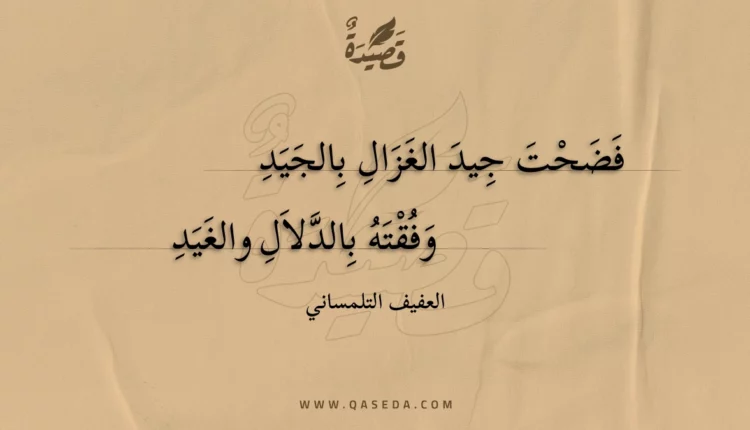 قَصِيْدَةٌ
فَضَحْتَ جِيدَ الغَزَالِ بِالجَيَدِ
وَفُقْتَهُ بِالدَّلاَلِ والغَيَدِ
العفيف التلمساني
WWW.QASEDA.COM